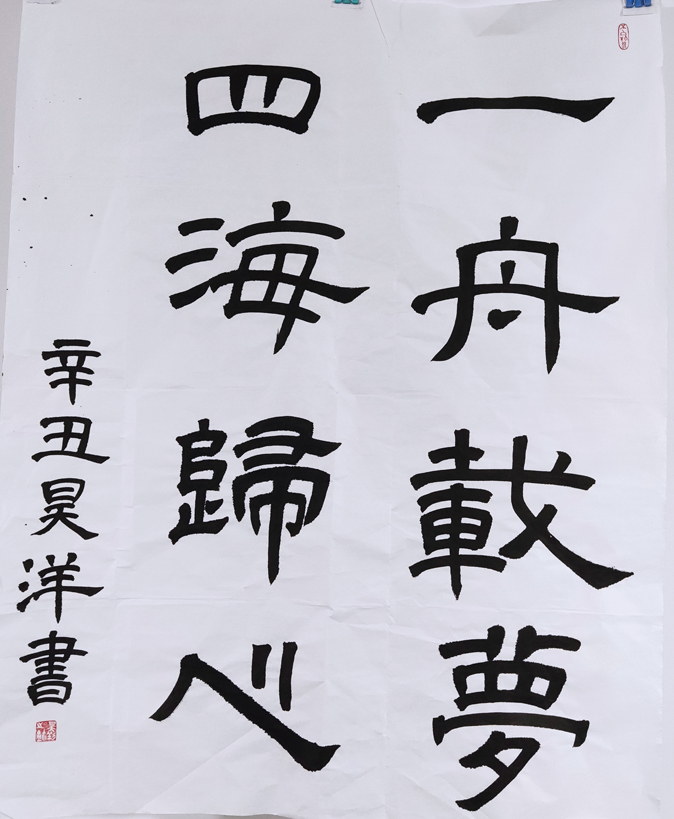 一舟載夢
四海歸心
辛丑昊洋書